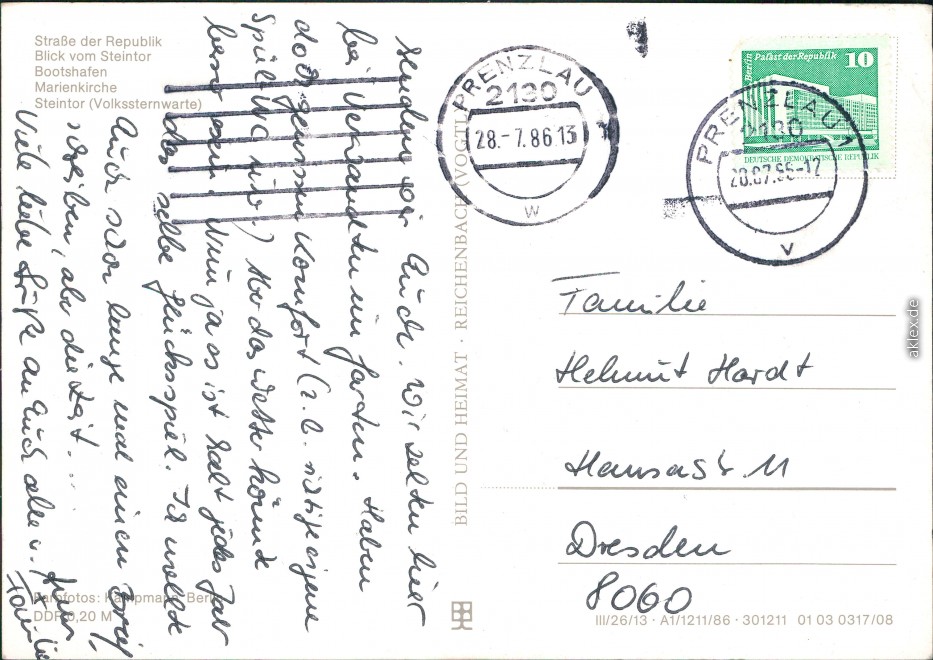 Straße der Republik
Blick vom Steintor
Bootshafen
Marienkirche
Steintor (Volkssternwarte)
senden wir Euch. Wir zelten hier
bei Verwandten im Garten. Haben
dort gewissen Komfort (z.b. richtige eigene
Spül WC nur) Aber das Wetter könnte
besser sein. Nun ja es ist halt jedes Jahr
das selbe Glücksspiel. Ich wollte
Euch schon lange mal einen Brief
schreiben, aber die Zeit...
Viele liebe Grüße an Euch alle v.
Farbfotos: Kampmann, Berlin
DDR 0,20 M
BILD UND HEIMAT · REICHENBACH (VOGTL
PRENZLAU
2130
28.-7.86.13
w
Berlin Palast der Republik
10
DEUTSCHE DEMOKRATISCHE REPUBLIK
PRENZLAU 1
2130
28.07.86-12
v
Familie
Helmut Hardt
Hansastr 11
Dresden
8060
III/26/13 · A1/1211/86 · 301211 01 03 0317/08
aklex.de